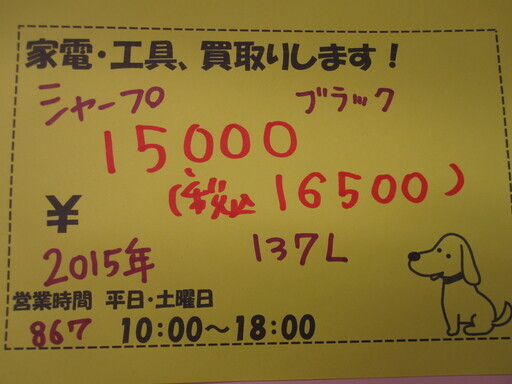 家電・工具、買取りします！
シャープ ブラック
15000
¥ (税込 16500)
2015年 137L
営業時間 平日・土曜日
867 10:00～18:00